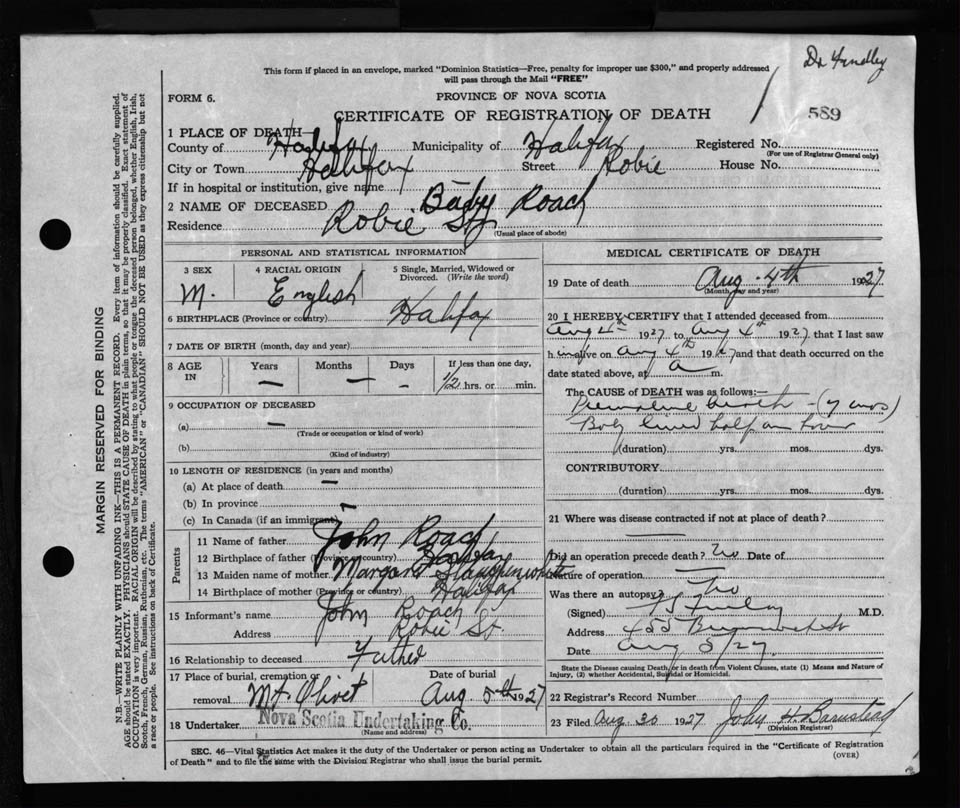 Dr Findley
This form if placed in an envelope, marked "Dominion Statistics—Free, penalty for improper use $300," and properly addressed
will pass through the Mail "FREE"
FORM 6.
PROVINCE OF NOVA SCOTIA
CERTIFICATE OF REGISTRATION OF DEATH
589
1 PLACE OF DEATH—
County of Halifax Municipality of Halifax Registered No.
(For use of Registrar General only)
City or Town Halifax Street Robie House No.
If in hospital or institution, give name
2 NAME OF DECEASED Baby Roach
Residence Robie St
(Usual place of abode)
PERSONAL AND STATISTICAL INFORMATION
3 SEX M. 4 RACIAL ORIGIN English 5 Single, Married, Widowed or Divorced. (Write the word)
6 BIRTHPLACE (Province or country) Halifax
7 DATE OF BIRTH (month, day and year)
8 AGE IN Years — Months — Days — If less than one day, 1/2 hrs. or min.
9 OCCUPATION OF DECEASED
(a) —
(Trade or occupation or kind of work)
(b)
(Kind of industry)
10 LENGTH OF RESIDENCE (in years and months)
(a) At place of death —
(b) In province —
(c) In Canada (if an immigrant)
Parents
11 Name of father John Roach
12 Birthplace of father (Province or country) Halifax
13 Maiden name of mother Margaret Slaughenwhite
14 Birthplace of mother (Province or country) Halifax
15 Informant's name John Roach
Address Robie St.
16 Relationship to deceased Father
17 Place of burial, cremation or removal Mt Olivet Date of burial Aug 5th 1927
18 Undertaker Nova Scotia Undertaking Co.
(Name and address)
MEDICAL CERTIFICATE OF DEATH
19 Date of death Aug. 4th 1927
(Month, day and year)
20 I HEREBY CERTIFY that I attended deceased from
Aug 4th 1927 to Aug 4th 1927 that I last saw
h im alive on Aug 4th 1927 and that death occurred on the
date stated above, at a m.
The CAUSE of DEATH was as follows:—
Premature birth — (7 mos)
Baby lived half an hour
(duration) yrs. mos. dys.
CONTRIBUTORY
(duration) yrs. mos. dys.
21 Where was disease contracted if not at place of death?
Did an operation precede death? no Date of
Nature of operation
Was there an autopsy? No
(Signed) M.D.
Address
Date Aug 5/27.
State the Disease causing Death, or in death from Violent Causes, state (1) Means and Nature of
Injury, (2) whether Accidental, Suicidal or Homicidal.
22 Registrar's Record Number
23 Filed Aug 30 1927 John H. Barnstead
(Division Registrar)
SEC. 46—Vital Statistics Act makes it the duty of the Undertaker or person acting as Undertaker to obtain all the particulars required in the "Certificate of Registration
of Death" and to file the same with the Division Registrar who shall issue the burial permit.
(OVER)
MARGIN RESERVED FOR BINDING
N.B.—WRITE PLAINLY WITH UNFADING INK—THIS IS A PERMANENT RECORD. Every item of information should be carefully supplied.
AGE should be stated EXACTLY. PHYSICIANS should STATE CAUSE OF DEATH in plain terms, so that it may be properly classified. Exact statement of
OCCUPATION is very important. RACIAL ORIGIN will be described by stating to what people or tongue the deceased person belonged, whether English, Irish,
Scotch, French, German, Russian, Ruthenian, etc. The terms "AMERICAN" or "CANADIAN" SHOULD NOT BE USED as they express citizenship but not
a race or people. See instructions on back of Certificate.